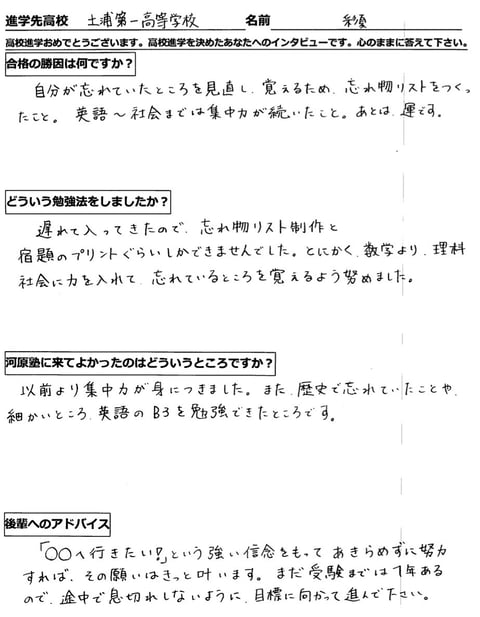 進学先高校 土浦第一高等学校 名前 彩優
高校進学おめでとうございます。高校進学を決めたあなたへのインタビューです。心のままに答えて下さい。
合格の勝因は何ですか？
自分が忘れていたところを見直し、覚えるため、忘れ物リストをつくっ
たこと。英語～社会までは集中力が続いたこと。あとは、運です。
どういう勉強法をしましたか？
遅れて入ってきたので、忘れ物リスト制作と
宿題のプリントぐらいしかできませんでした。とにかく、数学より、理科
社会に力を入れて、忘れているところを覚えるよう努めました。
河原塾に来てよかったのはどういうところですか？
以前より集中力が身につきました。また、歴史で忘れていたことや、
細かいところ、英語のB3を勉強できたところです。
後輩へのアドバイス
「○○へ行きたい!」という強い信念をもって あきらめずに努力
すれば、その願いはきっと叶います。まだ受験までは1年ある
ので、途中で息切れしないように、目標に向かって進んで下さい。